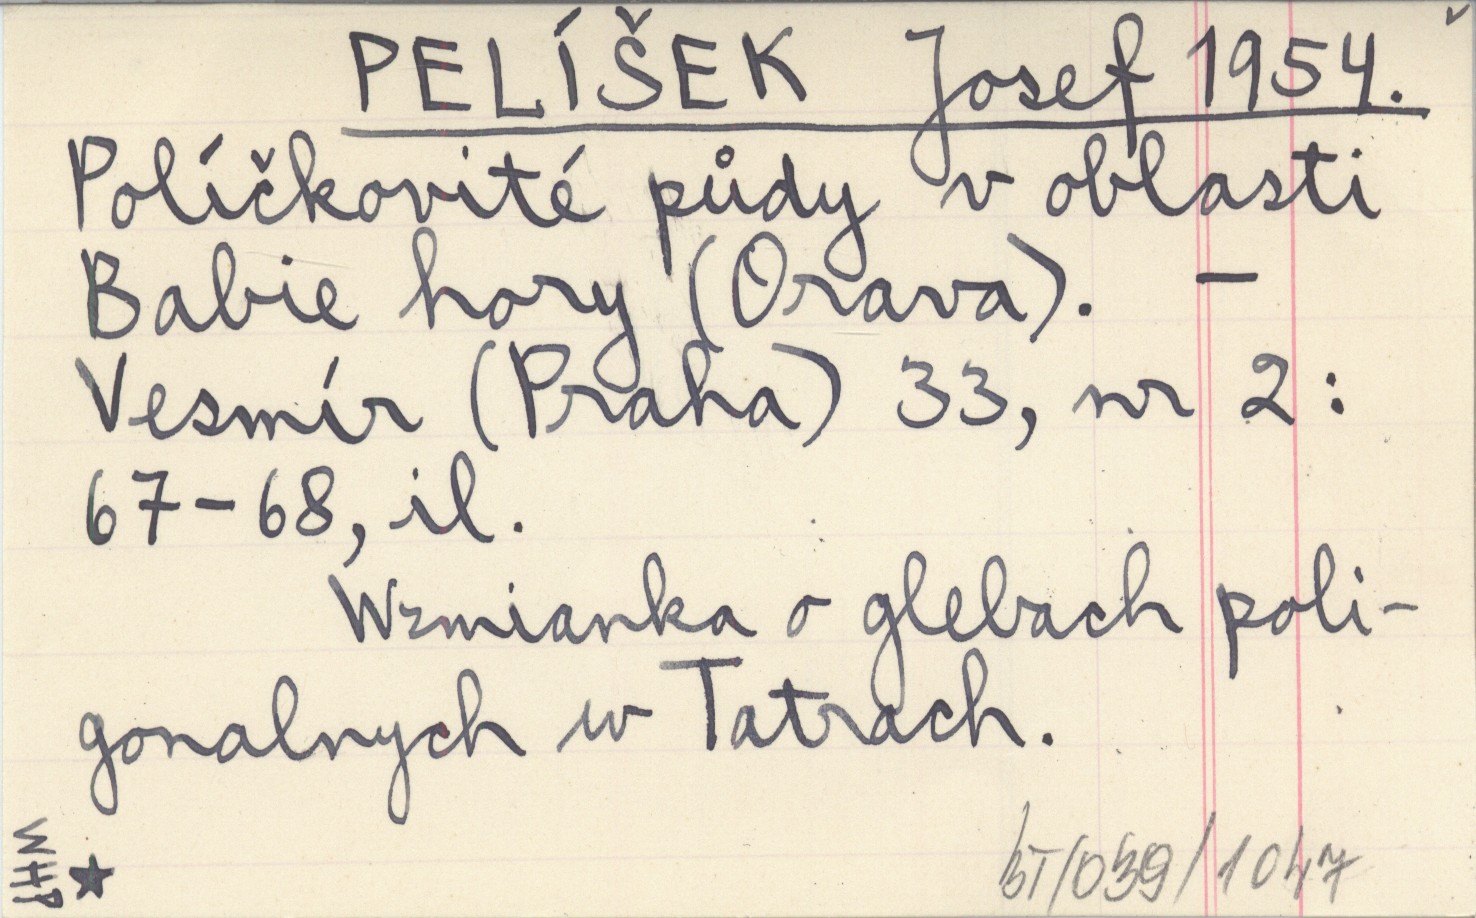 PELÍŠEK Josef 1954.
Políčkovité půdy v oblasti
Babie hory (Orava). –
Vesmír (Praha) 33, nr 2:
67–68, il.
Wzmianka o glebach poli-
gonalnych w Tatrach.
WHP ★
bT/039/1047